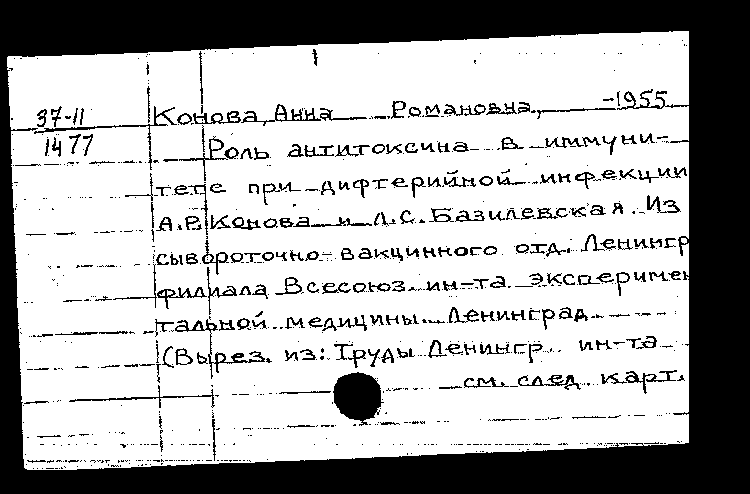 37-11
1477
Конова, Анна Романовна, -1955
Роль антитоксина в иммуни-
тете при дифтерийной инфекции
А.Р. Конова и Л.С. Базилевская. Из
сывороточно-вакцинного отд. Ленингр
филиала Всесоюз. ин-та эксперимен
тальной медицины. Ленинград
(Вырез. из: Труды Ленингр. ин-та
см. след. карт.